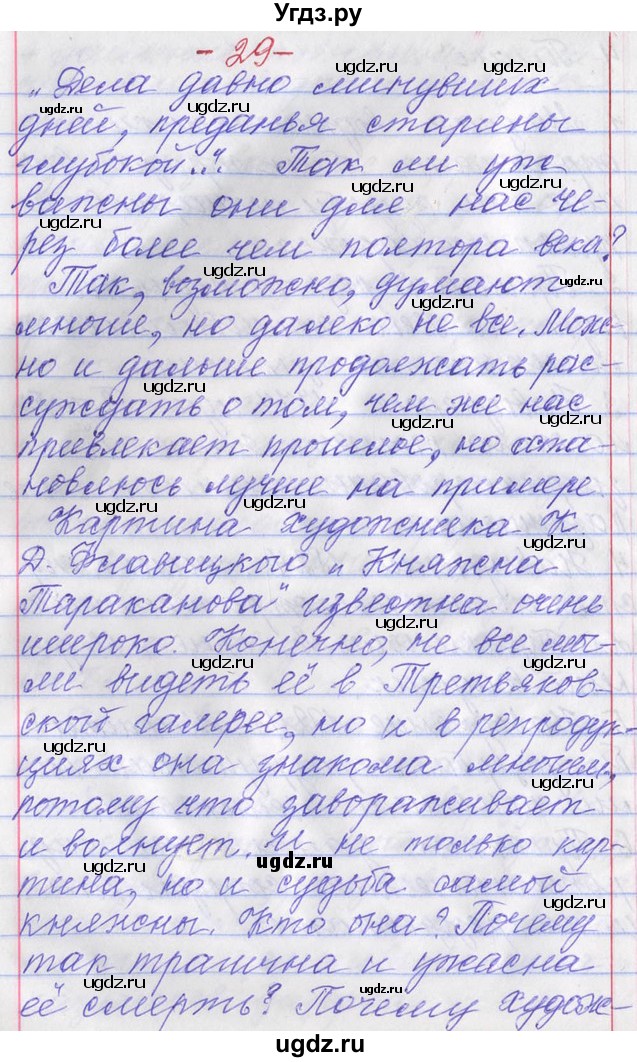 Угдз.ру
- 29 -
„Дела давно минувших
дней, преданья старины
глубокой...". Так ли уж
важны они для нас че-
рез более чем полтора века?
Так, возможно, думают
многие, но далеко не все. Мож-
но и дальше продолжать рас-
суждать о том, чем же нас
привлекает прошлое, но оста-
новлюсь лучше на примере
Картина художника К.
Д. Флавицкого „Княжна
Тараканова" известна очень
широко. Конечно, не все мы-
ли видеть её в Третьяков-
ской галерее, но и в репродук-
циях она знакома многим,
потому что завораживает
и волнует. И не только кар-
тина, но и судьба самой
княжны. Кто она? Почему
так трагична и ужасна
её смерть? Почему худож-
Угдз.ру